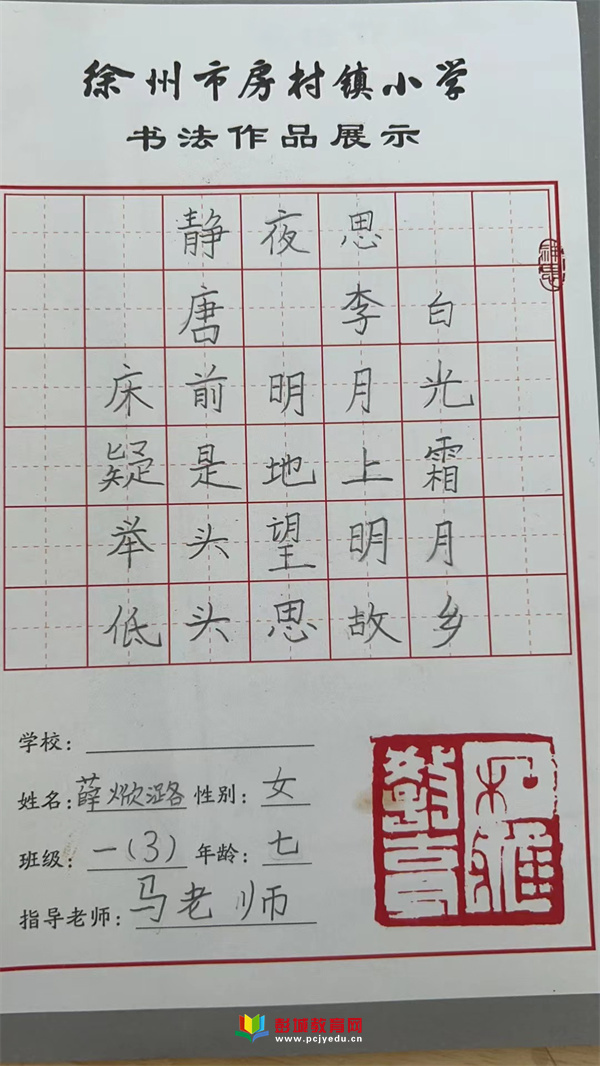 徐州市房村镇小学
书法作品展示
静夜思
唐 李白
床前明月光
疑是地上霜
举头望明月
低头思故乡
学校：
姓名：薛焮潞 性别：女
班级：一（3） 年龄：七
指导老师：马老师
彭城教育网
www.pcjyedu.cn